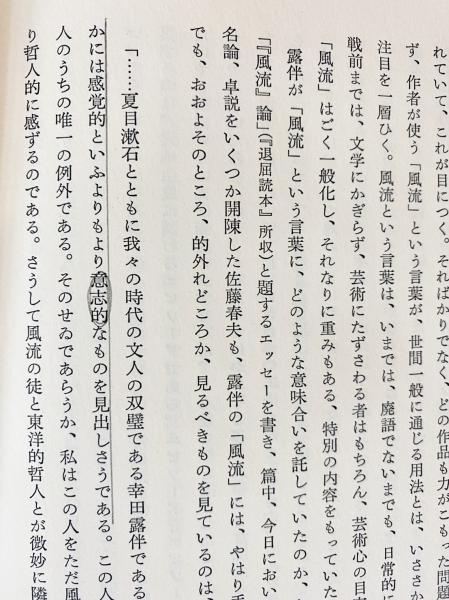 れていて、これが目につく。そればかりでなく、どの作品も力がこもった問題
ず、作者が使う「風流」という言葉が、世間一般に通じる用法とは、いささか
注目を一層ひく。風流という言葉は、いまでは、廃語でないまでも、日常的に
戦前までは、文学にかぎらず、芸術にたずさわる者はもちろん、芸術心の目
「風流」はごく一般化し、それなりに重みもある、特別の内容をもっていた
露伴が「風流」という言葉に、どのような意味合いを託していたのか、
「『風流』論」(『退屈読本』所収)と題するエッセーを書き、篇中、今日におい
名論、卓説をいくつか開陳した佐藤春夫も、露伴の「風流」には、やはり
でも、おおよそのところ、的外れどころか、見るべきものを見ているのは、
「……夏目漱石とともに我々の時代の文人の双璧である幸田露伴である
かには感覚的といふよりもより意志的なものを見出しさうである。この人
人のうちの唯一の例外である。そのせゐであらうか、私はこの人をただ風
り哲人的に感ずるのである。さうして風流の徒と東洋的哲人とが微妙に隣